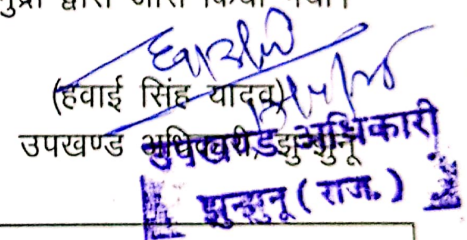 द्वारा जारी किया गया।
(हवाई सिंह यादव)
उपखण्ड अधिकारी, झुन्झुनू
उपखण्ड अधिकारी
झुन्झुनू (राज.)